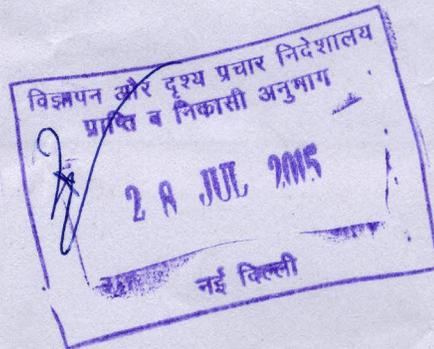 विज्ञापन और दृश्य प्रचार निदेशालय
प्राप्ति व निकासी अनुभाग
28 JUL 2015
नई दिल्ली